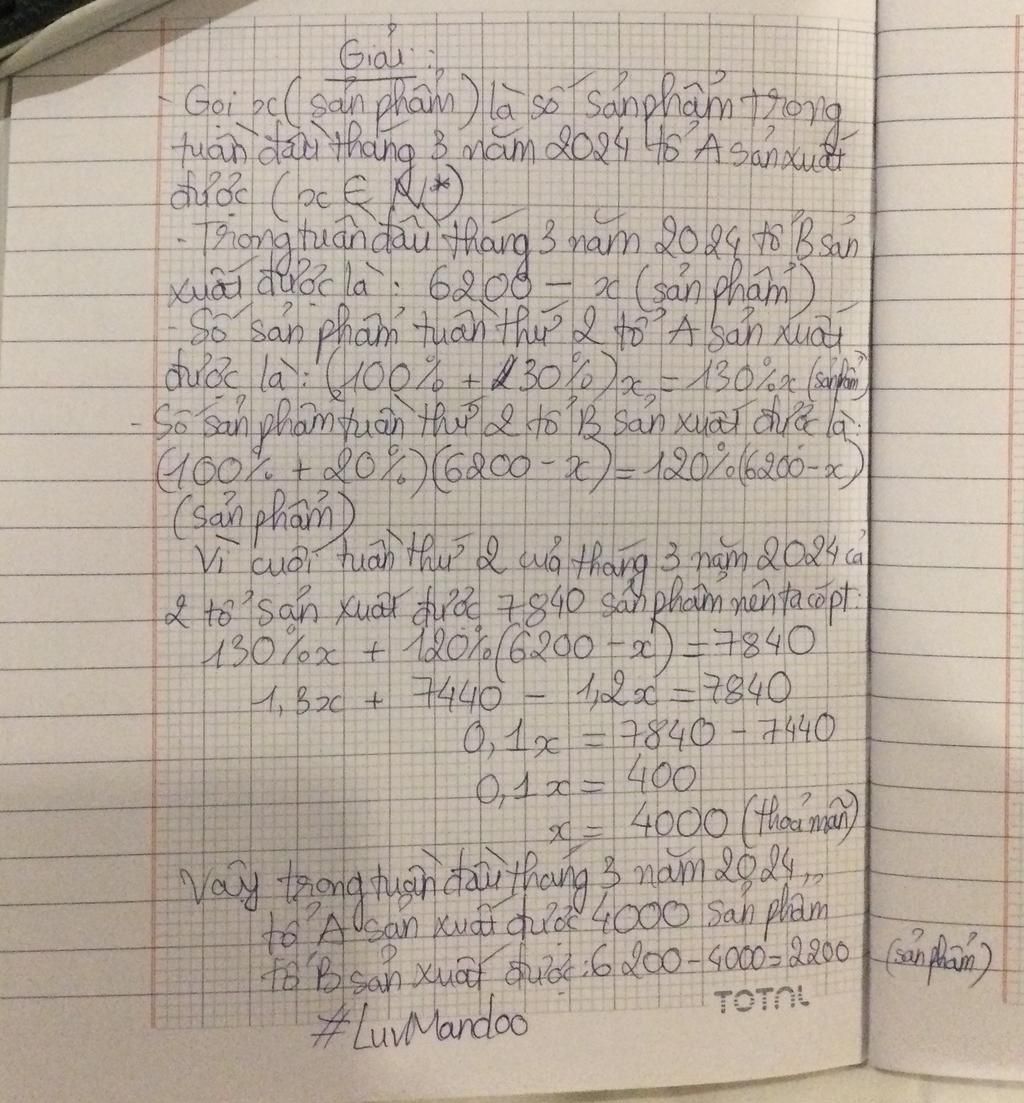 Giải:
- Gọi x (sản phẩm) là số sản phẩm trong
tuần đầu tháng 3 năm 2024 tổ A sản xuất
được (x ∈ N*)
- Trong tuần đầu tháng 3 năm 2024 tổ B sản
xuất được là: 6200 - x (sản phẩm)
- Số sản phẩm tuần thứ 2 tổ A sản xuất
được là: (100% + 30%)x = 130%x (sản phẩm)
- Số sản phẩm tuần thứ 2 tổ B sản xuất được là:
(100% + 20%)(6200 - x) = 120%(6200 - x)
(sản phẩm)
Vì cuối tuần thứ 2 của tháng 3 năm 2024 cả
2 tổ sản xuất được 7840 sản phẩm nên ta có pt:
130%x + 120%(6200 - x) = 7840
1,3x + 7440 - 1,2x = 7840
0,1x = 7840 - 7440
0,1x = 400
x = 4000 (thoả mãn)
Vậy trong tuần đầu tháng 3 năm 2024,,
tổ A sản xuất được 4000 sản phẩm
tổ B sản xuất được: 6200 - 4000 = 2200 (sản phẩm)
TOTAL
#LuvMandoo